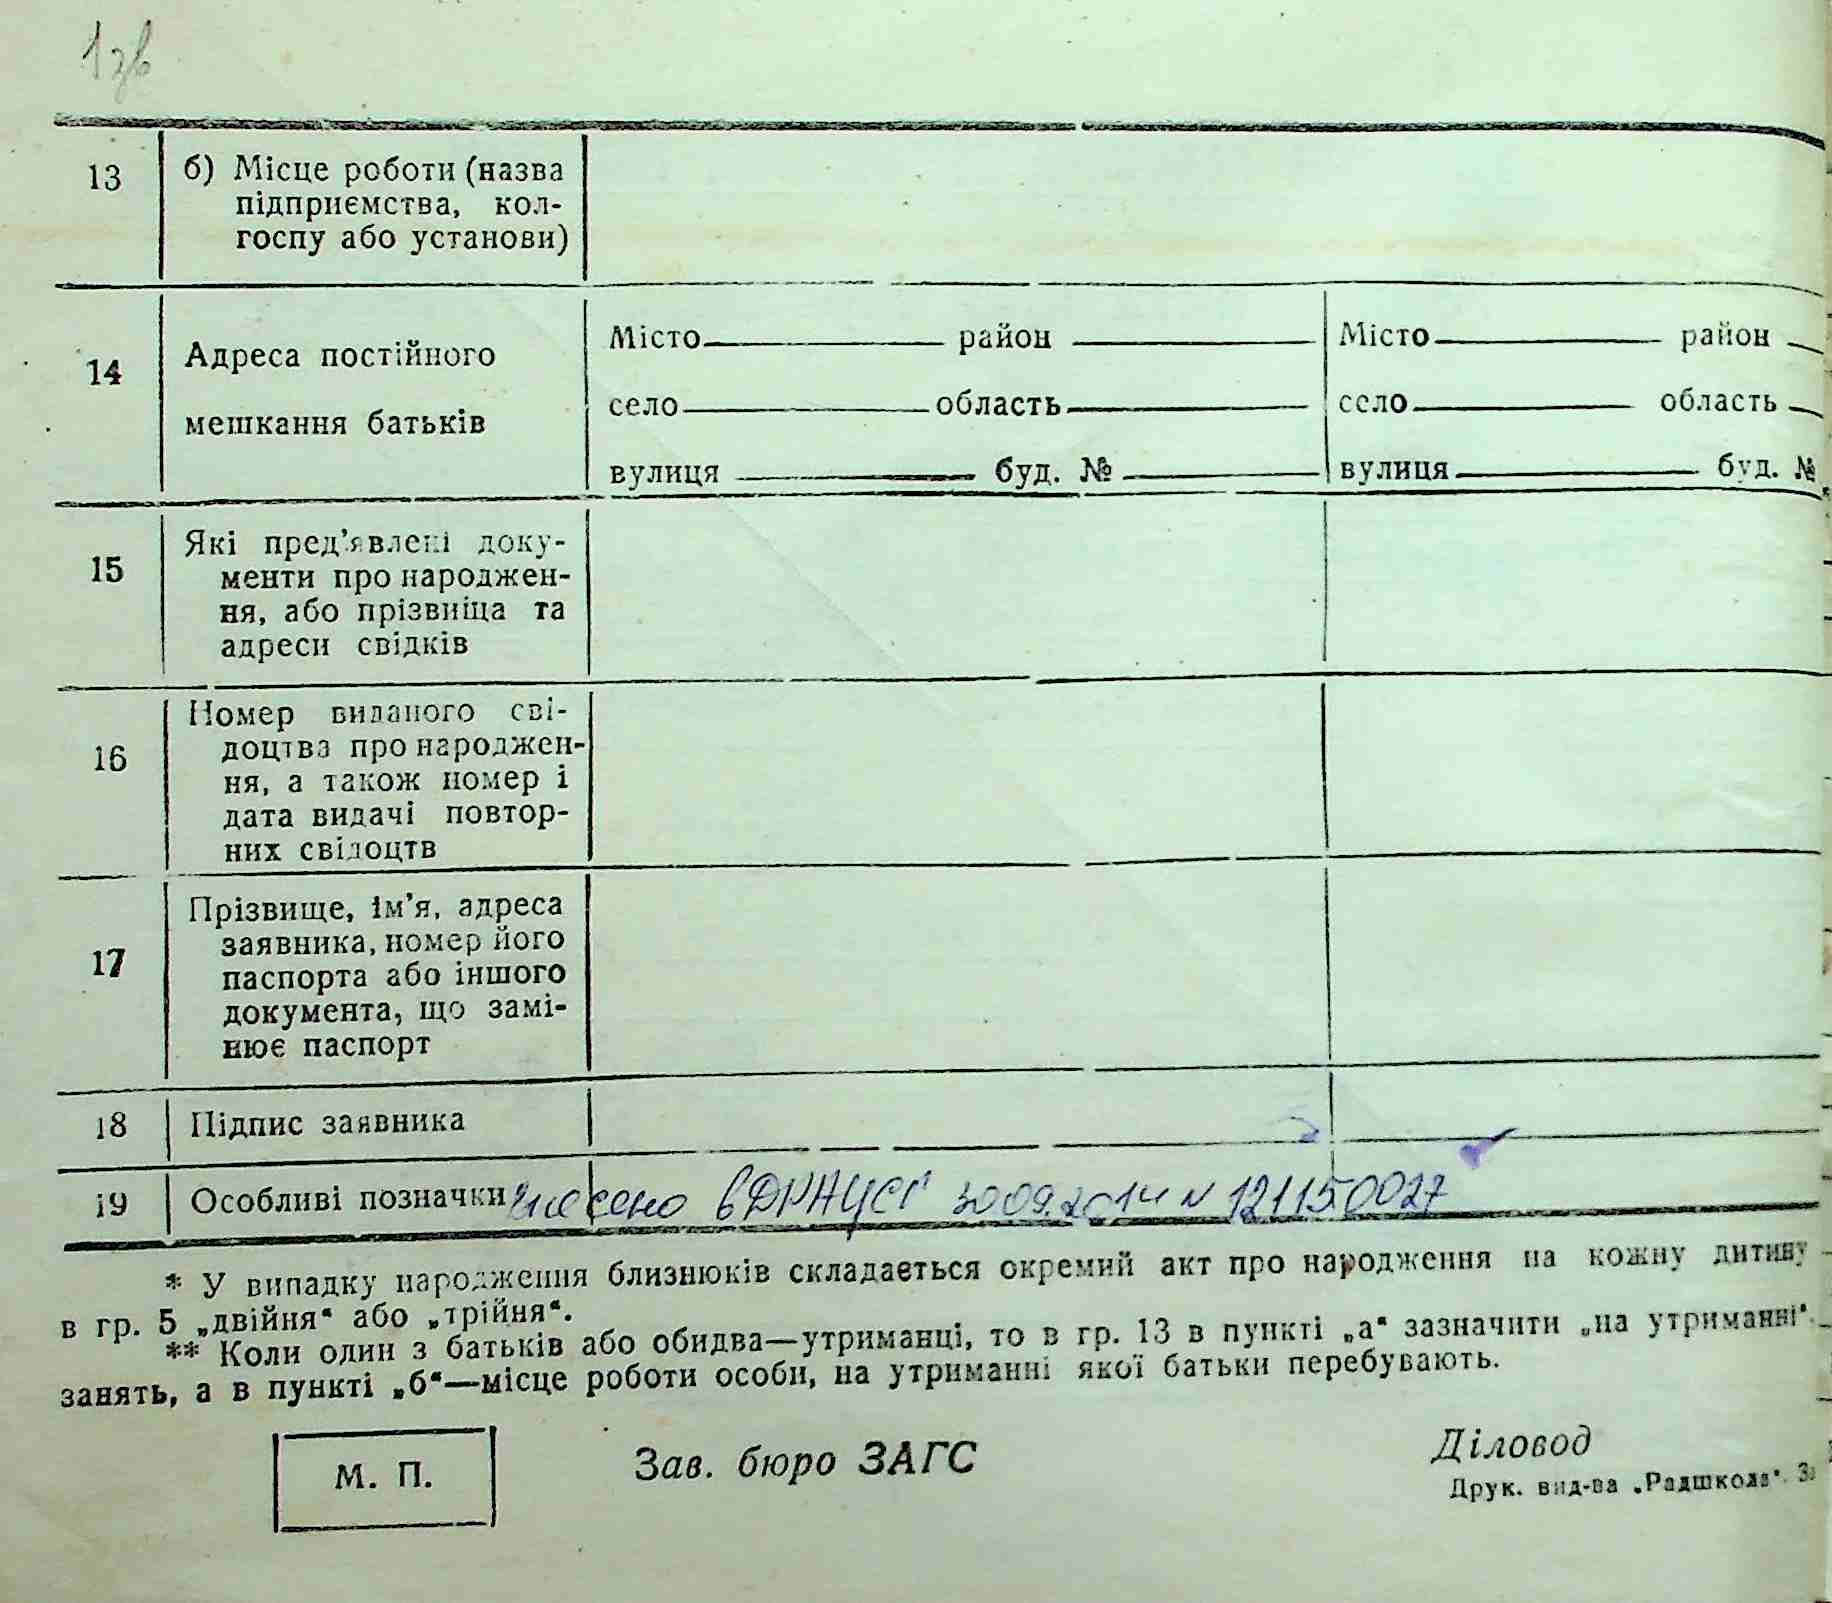 1зв
13
б) Місце роботи (назва
підприємства, кол-
госпу або установи)
14
Адреса постійного
мешкання батьків
Місто район
село область
вулиця буд. №
Місто район
село область
вулиця буд. №
15
Які пред’явлені доку-
менти про народжен-
ня, або прізвища та
адреси свідків
16
Номер виданого сві-
доцтва про народжен-
ня, а також номер і
дата видачі повтор-
них свідоцтв
17
Прізвище, ім’я, адреса
заявника, номер його
паспорта або іншого
документа, що замі-
нює паспорт
18 Підпис заявника
19 Особливі позначки внесено в ДРАЦСГ 30.09.2014 N 121150027
* У випадку народження близнюків складається окремий акт про народження на кожну дитину
в гр. 5 „двійня“ або „трійня“.
** Коли один з батьків або обидва—утриманці, то в гр. 13 в пункті „а“ зазначити „на утриманні“
занять, а в пункті „б“—місце роботи особи, на утриманні якої батьки перебувають.
М. П.
Зав. бюро ЗАГС
Діловод
Друк. вид-ва „Радшкола“.